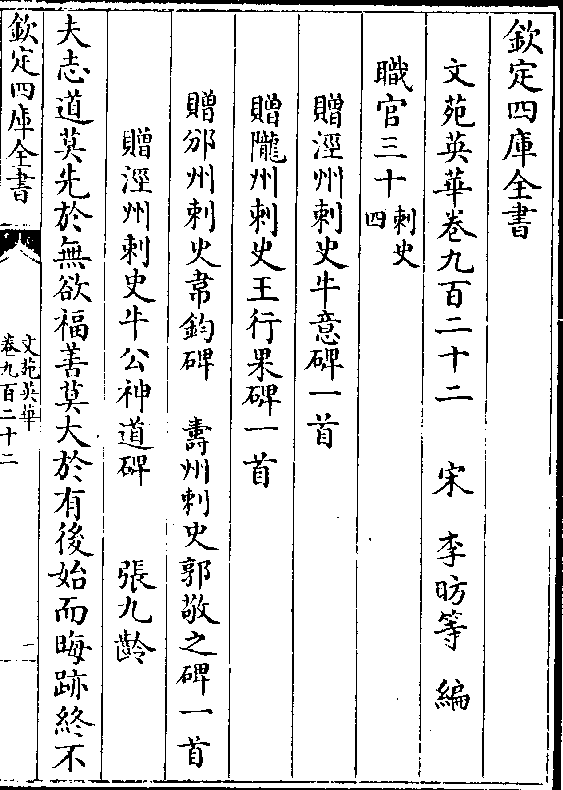 欽定四庫全書
文苑英華卷九百二十二 宋 李昉等 編
職官三十四 刺史
贈涇州刺史牛意碑一首
贈隴州刺史王行果碑一首
贈邠州刺史韋鈞碑 壽州刺史郭敬之碑一首
贈涇州刺史牛公神道碑 張九齡
夫志道莫先於無欲福善莫大於有後始而晦跡終不
欽定四庫全書
文苑英華
卷九百二十二
一